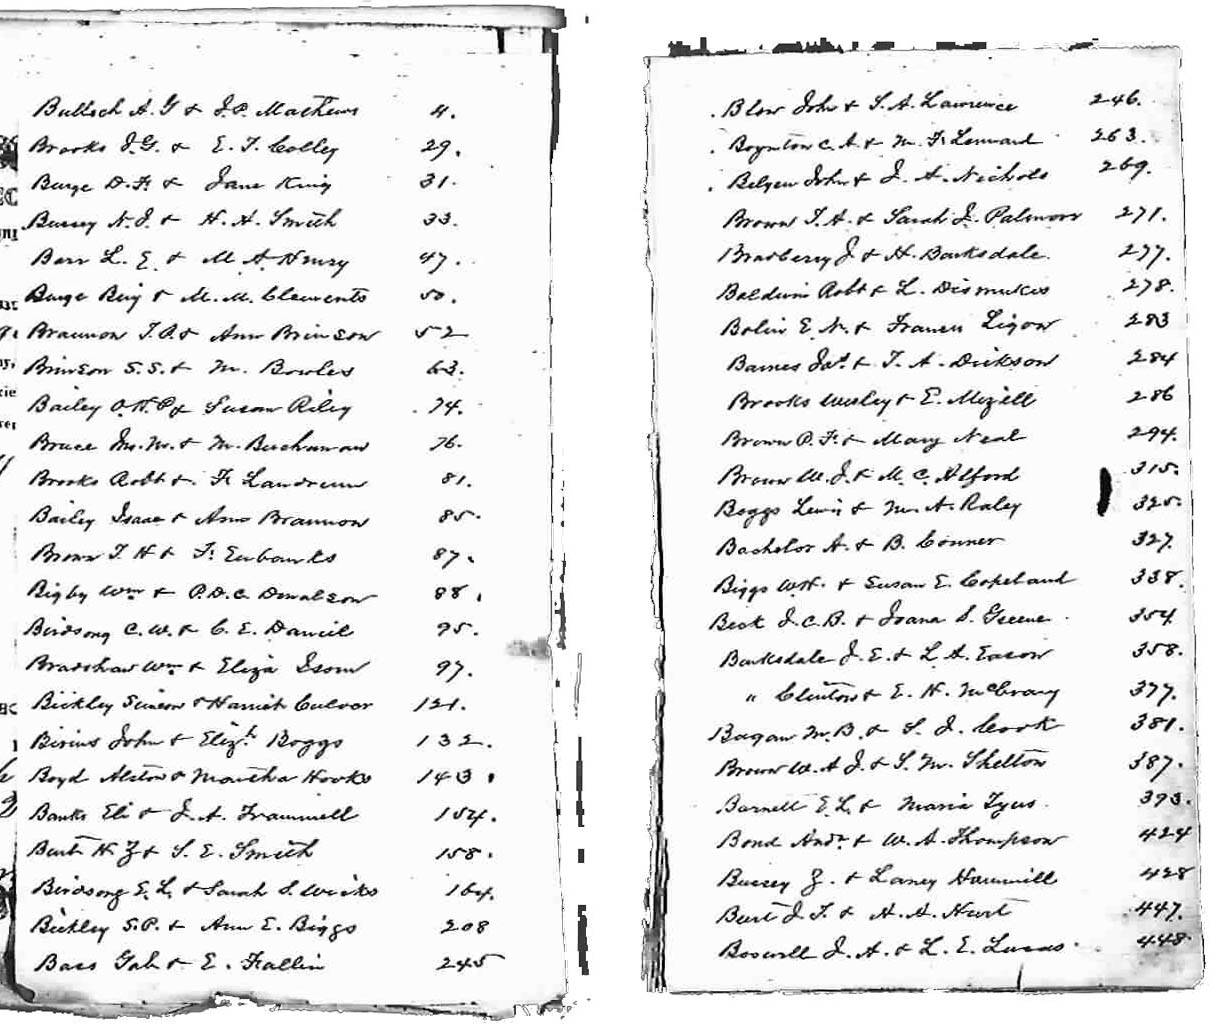 Bulloch A. G & J. P. Mathews 4.
Brooks J. G. & E. T. Colley 29.
Burge D. F. & Jane King 31.
Bussey N. J. & H. A. Smith 33.
Barr L. E. & M A Henry 47.
Burge Benj & M. M. Clements 50.
Brannon T. P. & Ann Brinson 52
Brinson S. S. & M. Bowles 63.
Bailey O. H. P & Susan Riley 74.
Bruce M. & M. Buchanan 76.
Brooks Robt & F Landrum 81.
Bailey Isaac & Ann Brannon 85.
Brown T. H & F. Eubanks 87.
Bigby Wm & P. D. C. Donalson 88.
Birdsong C. W. & C. E. Daniel 95.
Bradshaw Wm & Eliza Isom 97.
Bickley Simeon & Harriet Culver 121.
Birins John & Elizth Boggs 132.
Boyd Alston & Martha Hooks 143.
Banks Eli & J. A. Trammell 154.
Burt H Z & S. E. Smith 158.
Birdsong E. L. & Sarah S. Weeks 164.
Bickley S. P. & Ann E. Biggs 208
Bass Gab & E. Fallin 245
Blow John & S. A. Lawrence 246.
Boynton C. A. & M. F. Lennard 263.
Belyew John & J. A. Nichols 269.
Brown T. A. & Sarah J. Palmore 271.
Bradberry J & H. Barksdale. 277.
Baldwin Robt & L. Dismukes 278.
Bolin E. N. & Frances Ligon 283
Barnes Jas. & T. A. Dickson 284
Brooks Wesley & E. Mizell 286
Brown P. F. & Mary Neal 294.
Brown W. J. & M. C. Alford 315.
Boggs Lewis & M. A. Raley 325.
Bachelor A. & B. Conner 327.
Biggs W. H. & Susan E. Copeland 338.
Beck J. C. B. & Joana S. Greene. 354
Barksdale J. E. & L. A. Eason 358.
" Clinton & E. H. McCrary 377.
Bagan M. B. & S. J. Cook 381.
Brown W. A J. & S. M. Shelton 387.
Barnett E. L. & Maria Tyus. 393.
Bond Andr & W. A. Thompson 424
Bussey Z. & Laney Hammill 428
Burt J. T. & A. A. Hurt 447.
Boswell J. A. & L. E. Lucas. 448.